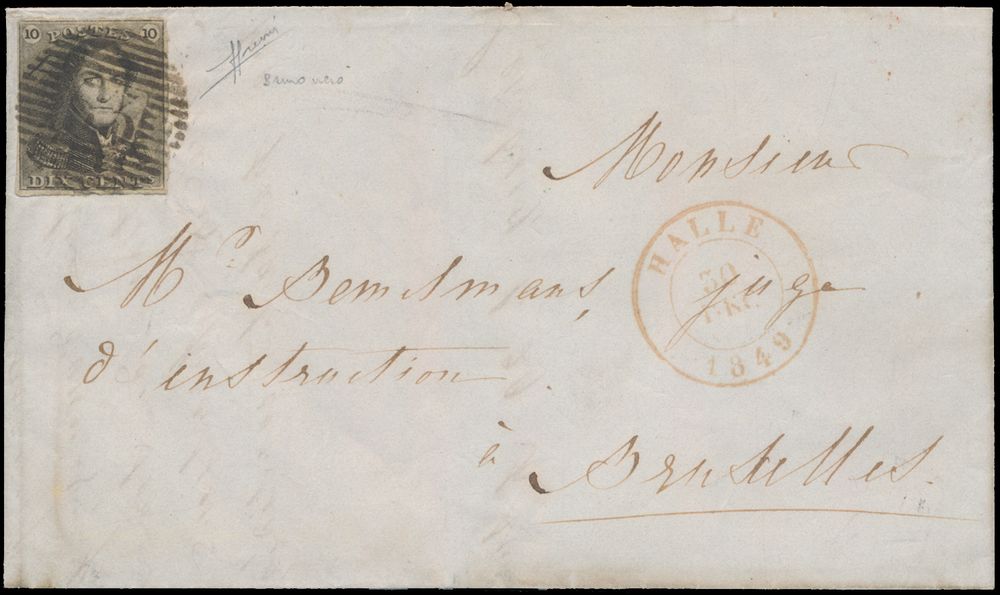 10 POSTES 10
DIX CENTS
Monsieur
Mr. Bemelmans, juge
d'instruction.
à Bruxelles.
HALLE
30
DEC.
1849